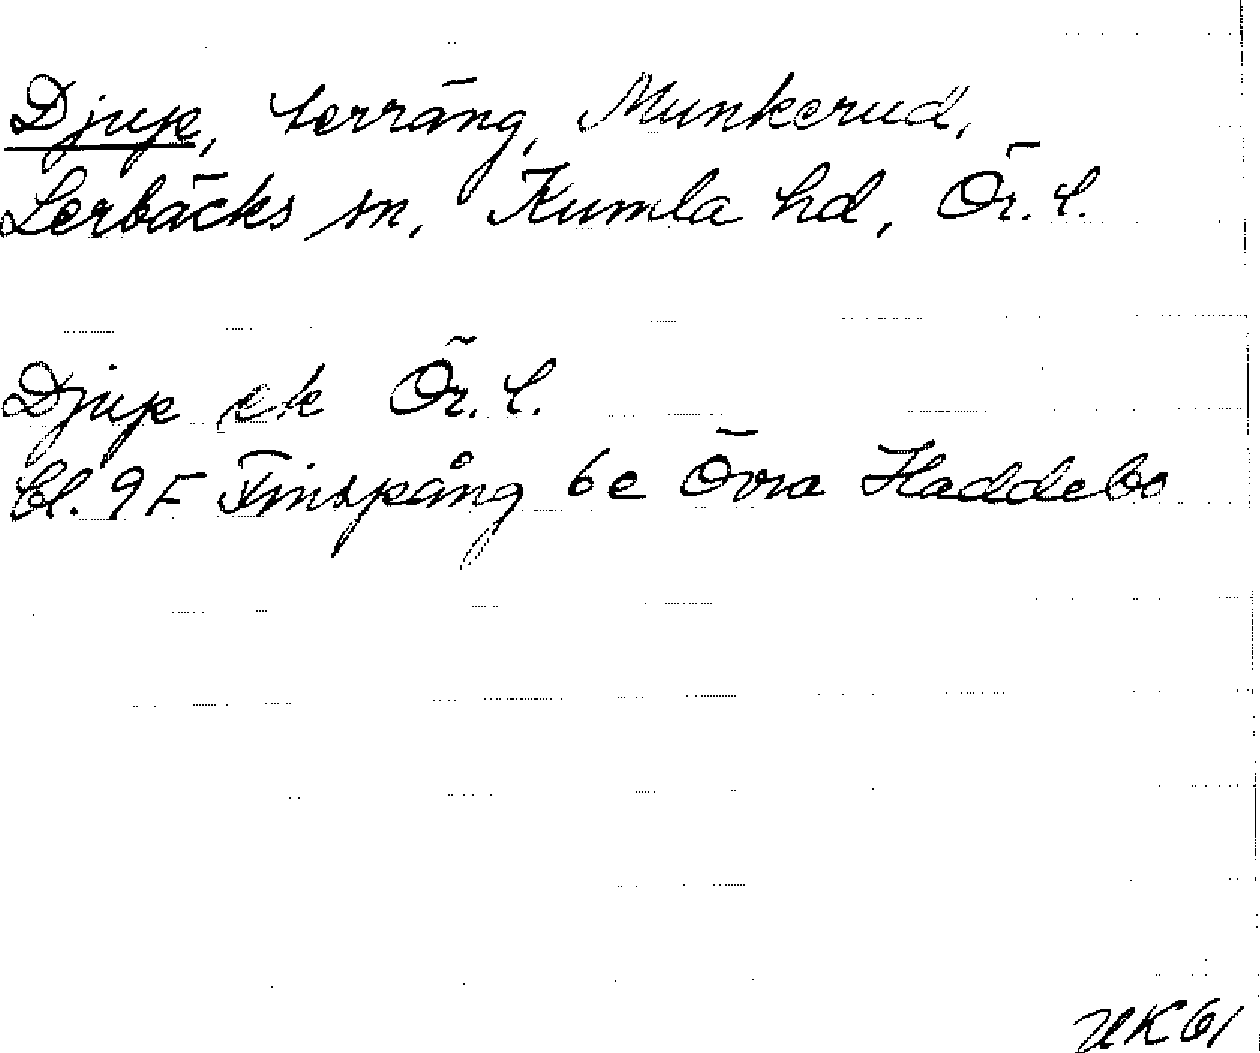 Djup, terräng, Munkerud,
Lerbäcks sn, Kumla hd, Ör. l.
Djup ek Ör. l.
Bl. 9F Finspång 6e Övra Haddebo
UK61